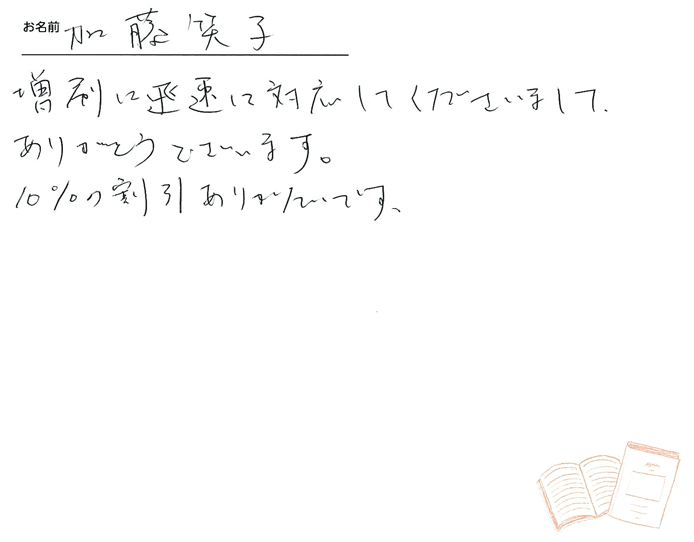 お名前 加藤笑子
増刷に迅速に対応してくださいまして、
ありがとうございます。
10%の割引ありがたいです、